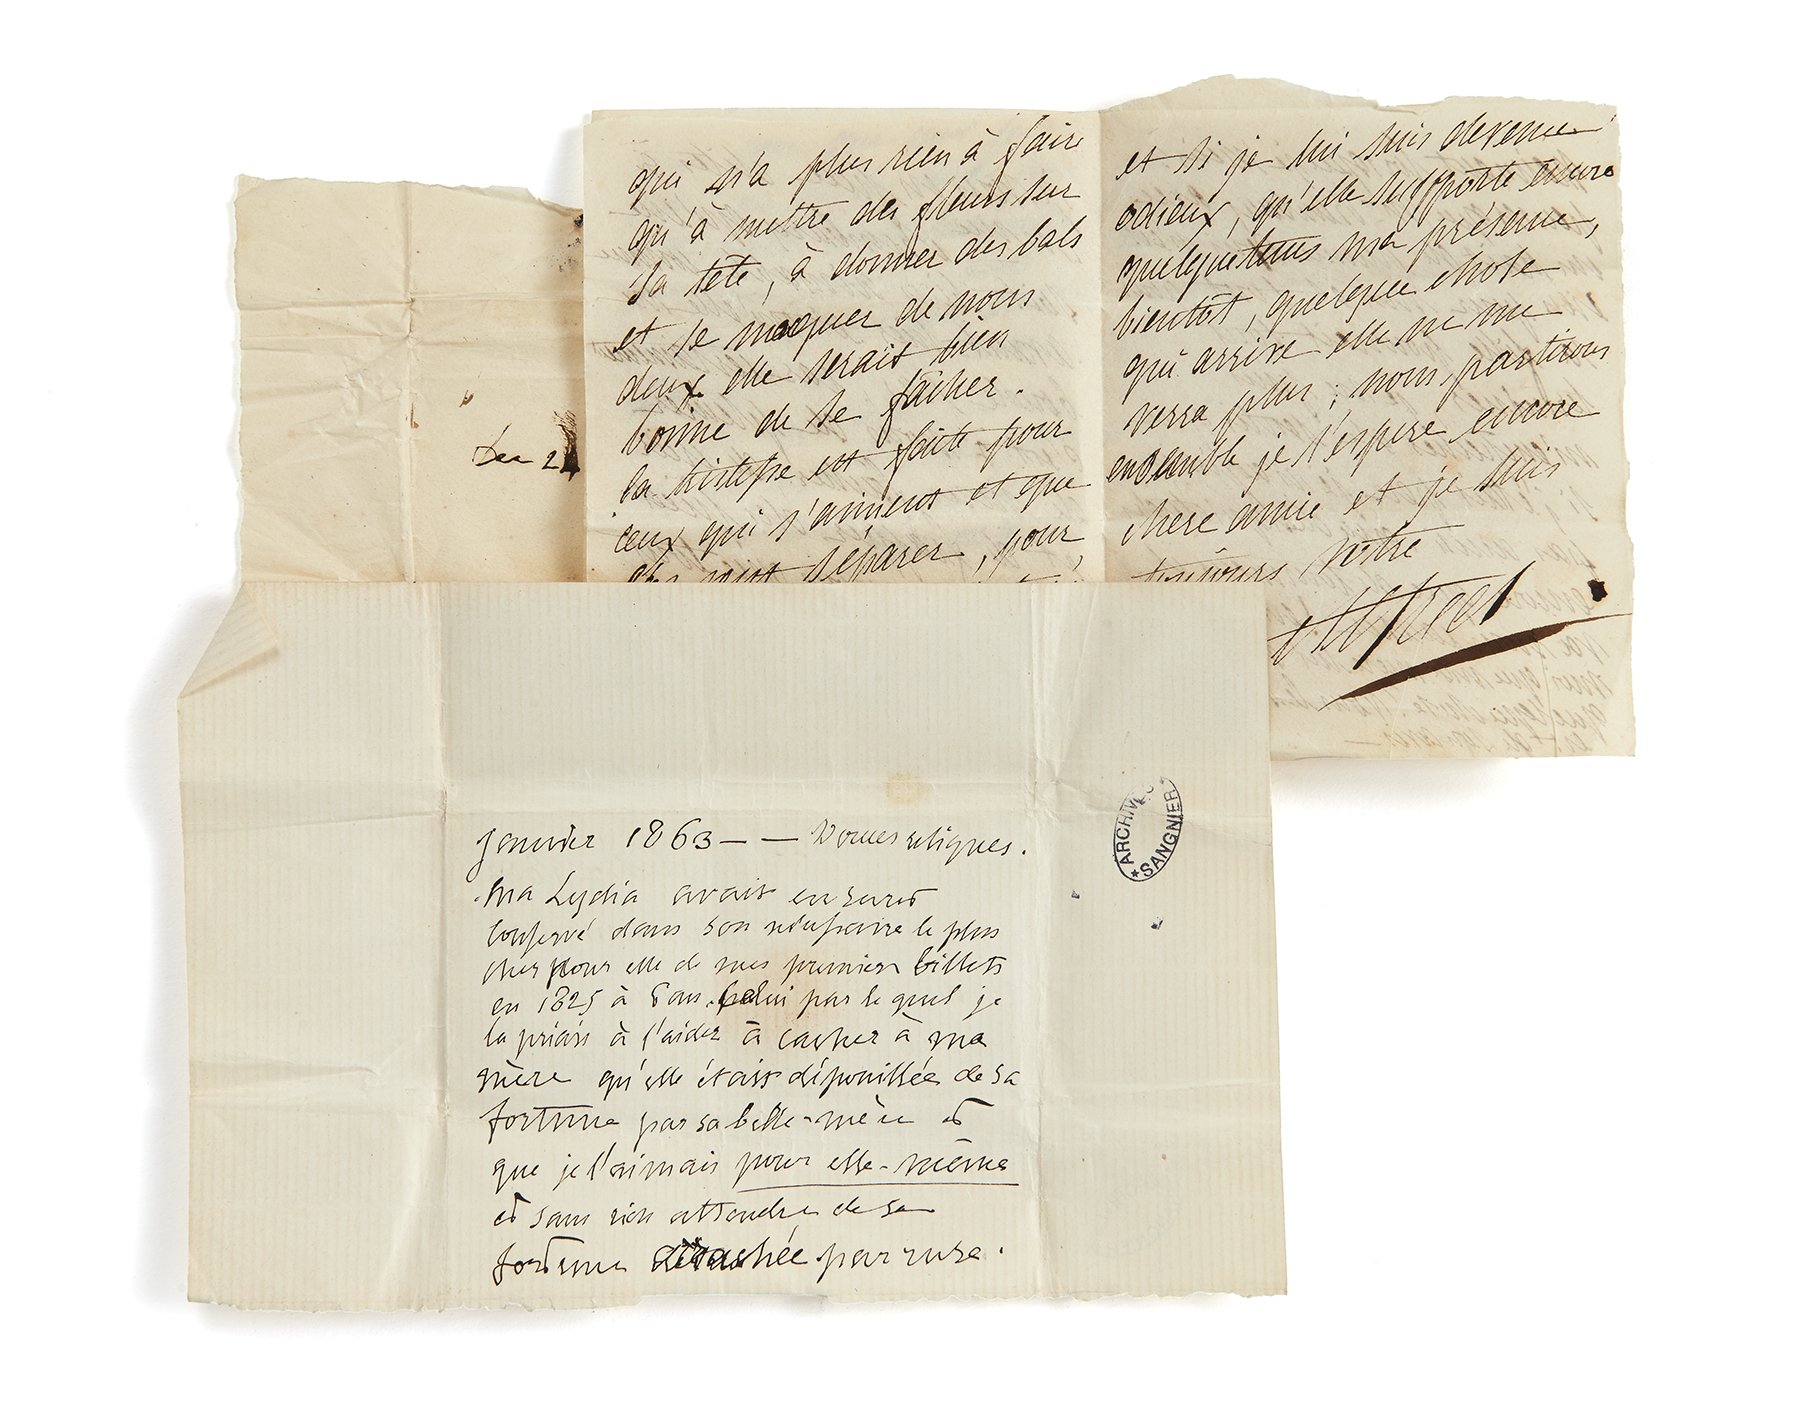 qui n'a plus rien à faire
qu'à mettre des fleurs sur
sa tête, à donner des bals
et se moquer de nous
deux elle serait bien
bonne de se fâcher.
la tristesse est faite pour
ceux qui s'aiment et que
séparer, pour
et si je lui suis devenu
odieux, qu'elle supporte encore
quelquetems ma présence,
bientôt, quelque chose
qui arrive elle ne me
verra plus ; nous partirons
ensemble je l'espere encore
chere amie et je suis
toujours votre
Alfred
Janvier 1863 — — Douces reliques.
Ma Lydia avait en secret
conservé dans son le plus
cher pour elle de mes premiers billets
en 1825 à Pau. Celui par lequel je
la priais à l'aider à cacher à ma
mère qu'elle était dépouillée de sa
fortune par sa belle-mère et
que je l'aimais pour elle-même
et sans rien attendre de sa
fortune arrachée par ruse.
ARCHIVES
SANGNIER